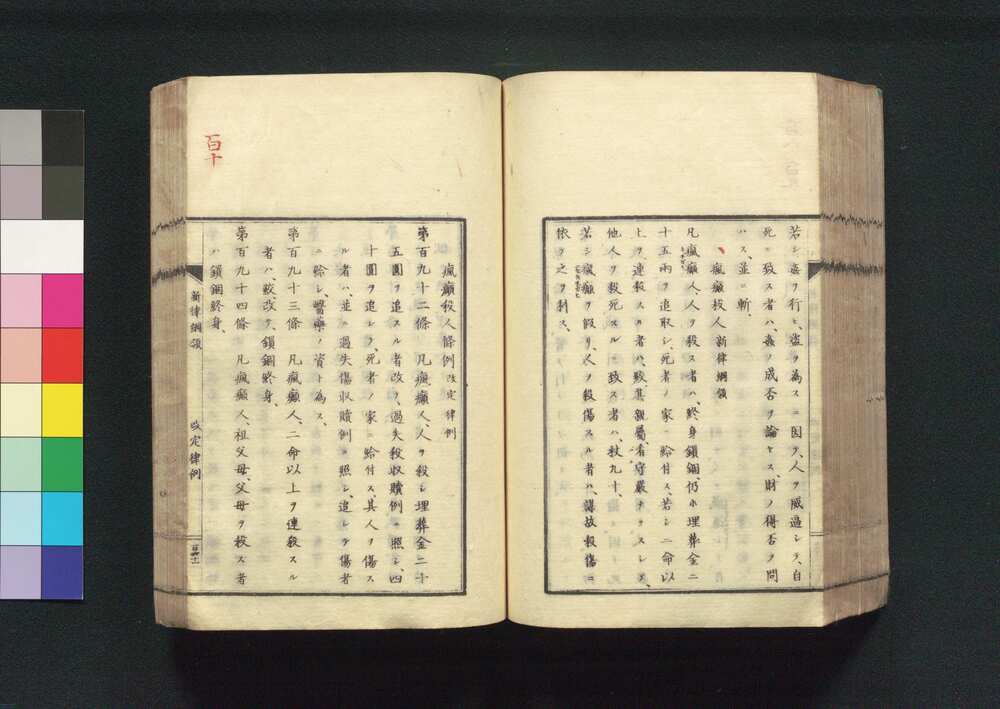 若シ姦ヲ行ヒ、盗ヲ為スニ因ヲ、人ヲ威逼シテ、自
死ニ致ス者ハ、姦ノ成否ヲ論セス、財ノ得否ヲ問
ハス、並ニ斬、
瘋癲殺人 新律綱領
凡瘋癲人、人ヲ殺ス者ハ、終身鎖錮、仍ホ埋葬金二
十五兩ヲ追取シ、死者ノ家ニ給付ス、若シ二命以
上ヲ、連殺スル者ハ、絞、其親屬看守嚴ナラスシテ、
他人ヲ殺死スルニ致ス者ハ、杖九十、
若シ瘋癲ヲ假リ、人ヲ殺傷スル者ハ、謀故殺傷ニ
依テ之ヲ科ス、
瘋癲殺人條例 改定律例
第百九十二條 凡瘋癲人、人ヲ殺シ、埋葬金二十
五圓ヲ追スル者改テ、過失殺收贖例ニ照シ、四
十圓ヲ追シテ、死者ノ家ニ給付ス、其人ヲ傷ス
ル者ハ、並ニ過失傷收贖例ニ照シ、追シテ傷者
ニ給シ、醫藥ノ資ト為ス、
第百九十三條 凡瘋癲人、二命以上ヲ連殺スル
者ハ、絞、改テ、鎖錮終身、
第百九十四條 凡瘋癲人、祖父母、父母ヲ殺ス者
ハ鎖錮終身、
新律綱領 改定律例
百十